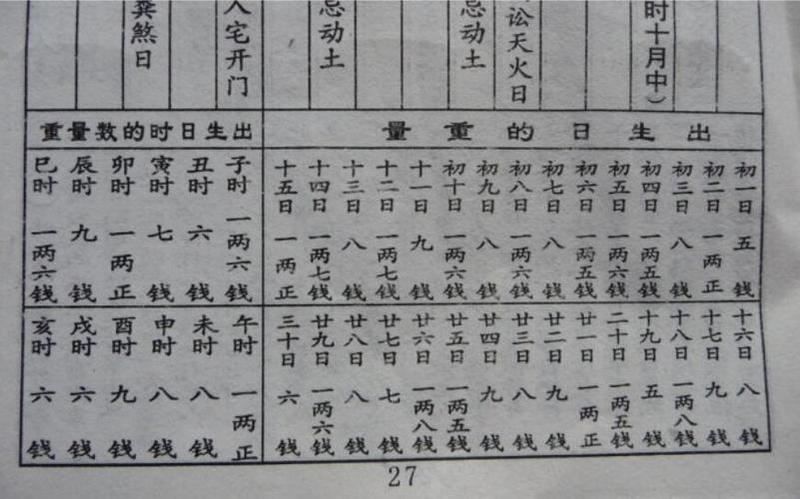 时十月中）
讼天火日
忌动土
忌动土
宅开门
煞日
出生日的重量
初一日 五钱
初二日 一两正
初三日 八钱
初四日 一两五钱
初五日 一两六钱
初六日 一两五钱
初七日 八钱
初八日 一两六钱
初九日 八钱
初十日 一两六钱
十一日 九钱
十二日 一两七钱
十三日 八钱
十四日 一两七钱
十五日 一两正
十六日 八钱
十七日 九钱
十八日 一两八钱
十九日 五钱
二十日 一两五钱
廿一日 一两正
廿二日 九钱
廿三日 八钱
廿四日 九钱
廿五日 一两五钱
廿六日 一两八钱
廿七日 七钱
廿八日 八钱
廿九日 一两六钱
三十日 六钱
出生日时的数量重
子时 一两六钱
丑时 六钱
寅时 七钱
卯时 一两正
辰时 九钱
巳时 一两六钱
午时 一两正
未时 八钱
申时 八钱
酉时 九钱
戌时 六钱
亥时 六钱
27